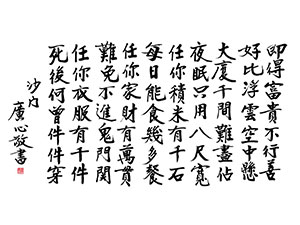 即得富貴不行善
好比浮雲空中懸
大廈千間難盡佔
夜眠只用八尺寬
任你積米有千石
每日能食幾多餐
任你家財有萬貫
難免不進鬼門關
任你衣服有千件
死後何曾件件穿
沙內
廣心敬書